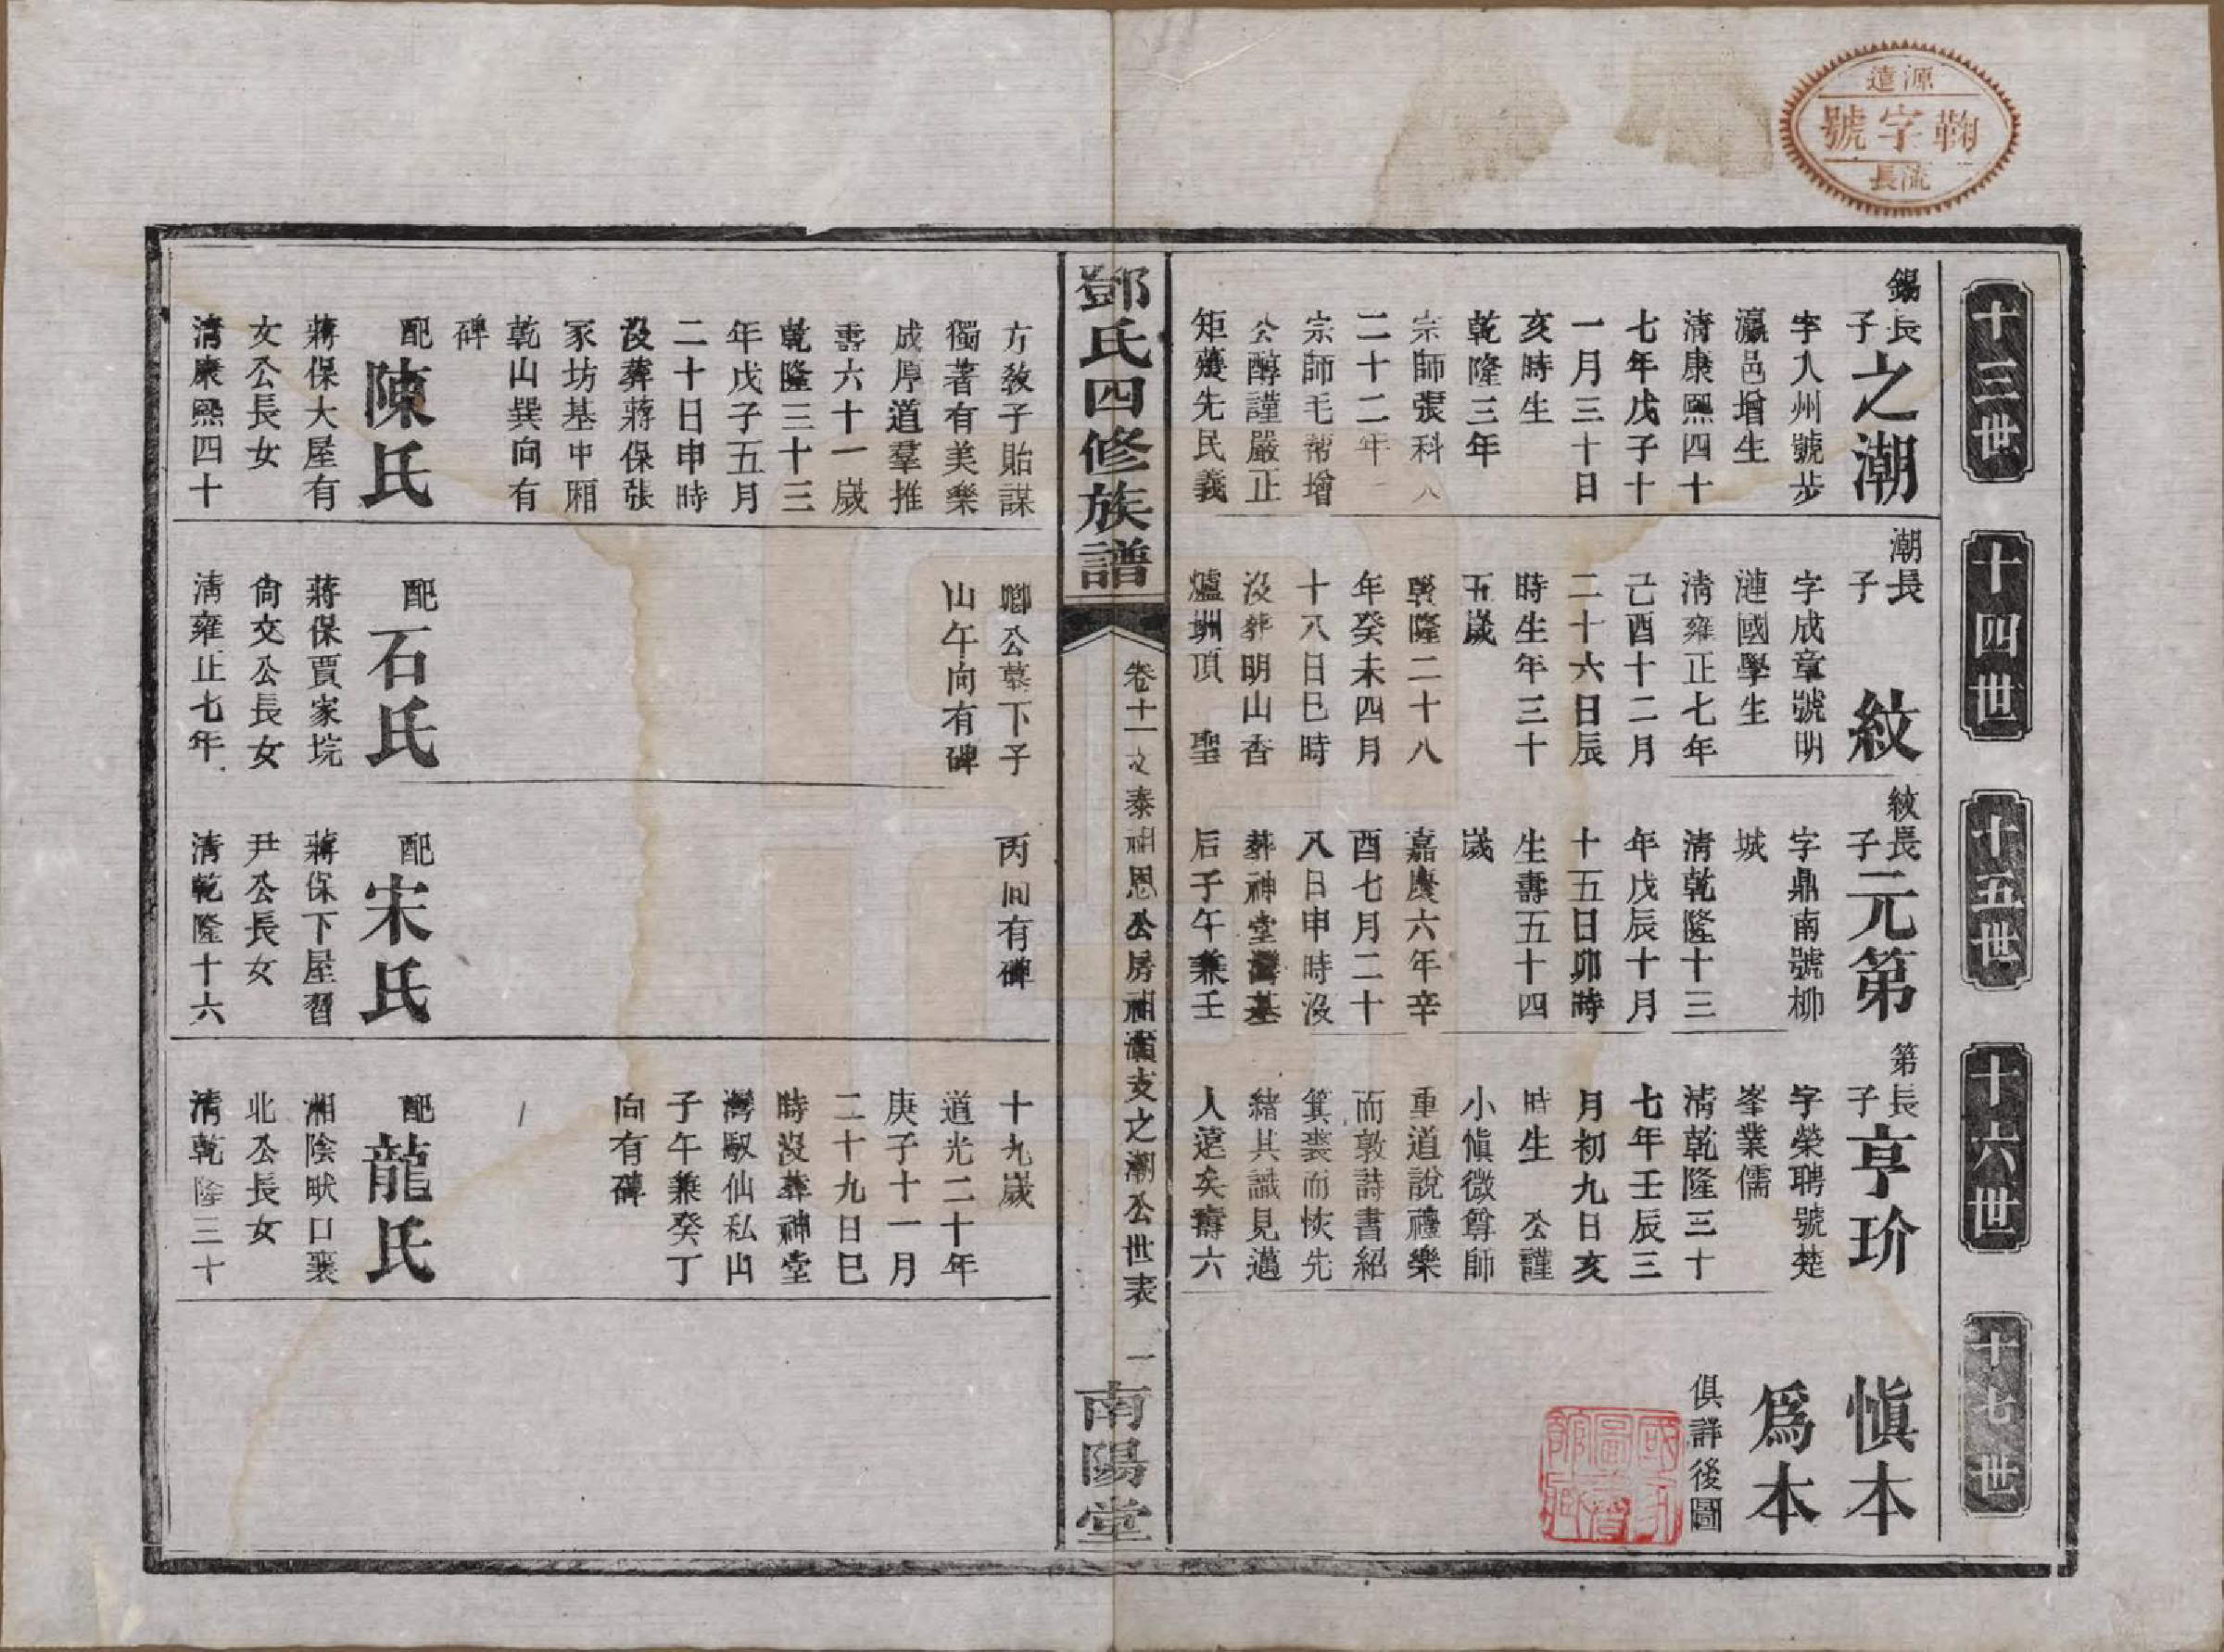 源遠
鞫字號
流長
十三世
十四世
十五世
十六世
十七世
錫長子
之潮
字入州號步
瀛邑增生
清康熙四十
七年戊子十
一月三十日
亥時生
乾隆三年
宗師張科入
二十二年
宗師毛幇增
公醇謹嚴正
矩矱先民義
潮長子
紋
字成章號明
漣國學生
清雍正七年
己酉十二月
二十六日辰
時生年三十
五歲
乾隆二十八
年癸未四月
十八日巳時
沒葬明山香
爐洲頂 聖
紋長子
元第
字鼎南號柳
城
清乾隆十三
年戊辰十月
十五日卯時
生壽五十四
歲
嘉慶六年辛
酉七月二十
八日申時沒
葬神堂灣基
后子午兼壬
第長子
亨玠
字榮聘號楚
峯業儒
清乾隆三十
七年壬辰三
月初九日亥
時生 公謹
小愼微尊師
重道說禮樂
而敦詩書紹
箕裘而恢先
緒其識見邁
人遠矣壽六
愼本
爲本
俱詳後圖
鄧氏四修族譜
卷十一文泰祖恩公房祖瀆支之潮公世表
一
南陽堂
方敎子貽謀
獨著有美樂
成厚道羣推
壽六十一歲
乾隆三十三
年戊子五月
二十日申時
沒葬蔣保張
冢坊基中厢
乾山巽向有
碑
配
陳氏
蔣保大屋有
女公長女
清康熙四十
卿公墓下子
山午向有碑
配
石氏
蔣保賈家垸
尙文公長女
清雍正七年
丙向有碑
配
宋氏
蔣保下屋習
尹公長女
清乾隆十六
十九歲
道光二十年
庚子十一月
二十九日巳
時沒葬神堂
灣馭仙私山
子午兼癸丁
向有碑
配
龍氏
湘陰畎口襄
北公長女
清乾隆三十